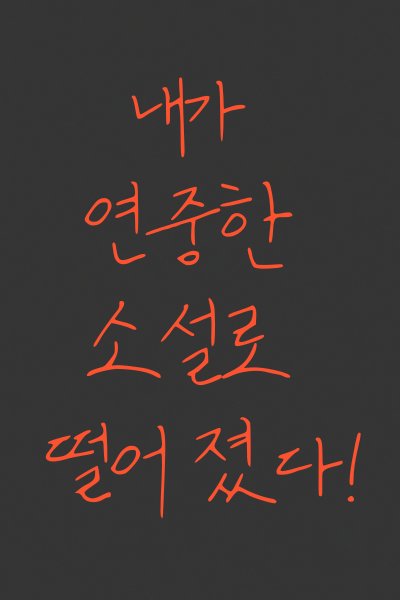 내가
연중한
소설로
떨어졌다!